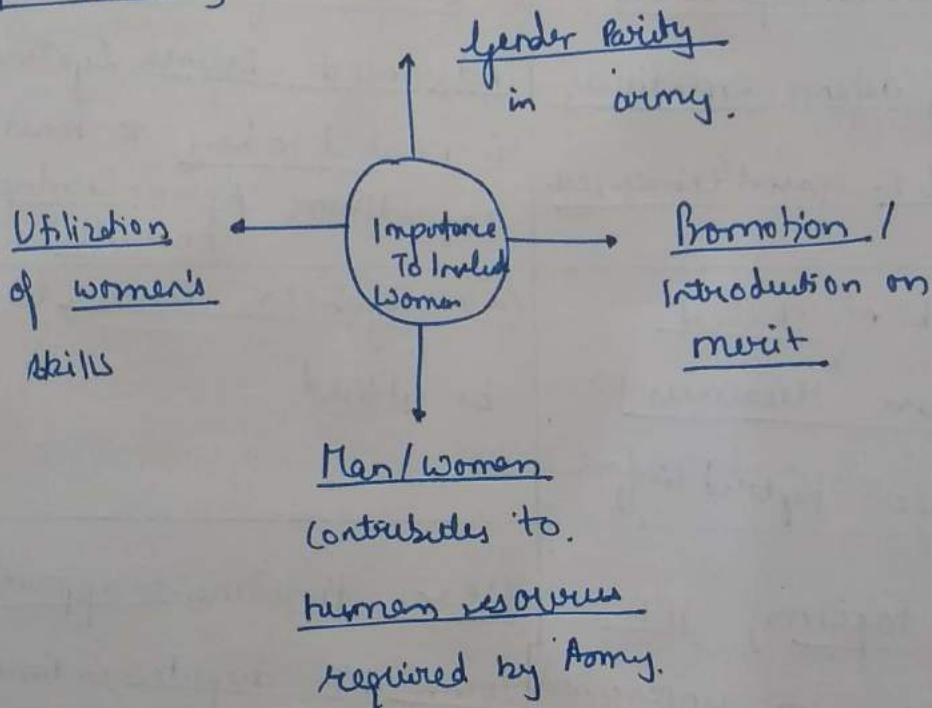 Gender Parity
in army.
Utilization
of women's
skills
Importance
To Include
Women
Promotion /
Introduction on
merit
Man/Woman
Contributes to.
human resources
required by Army.